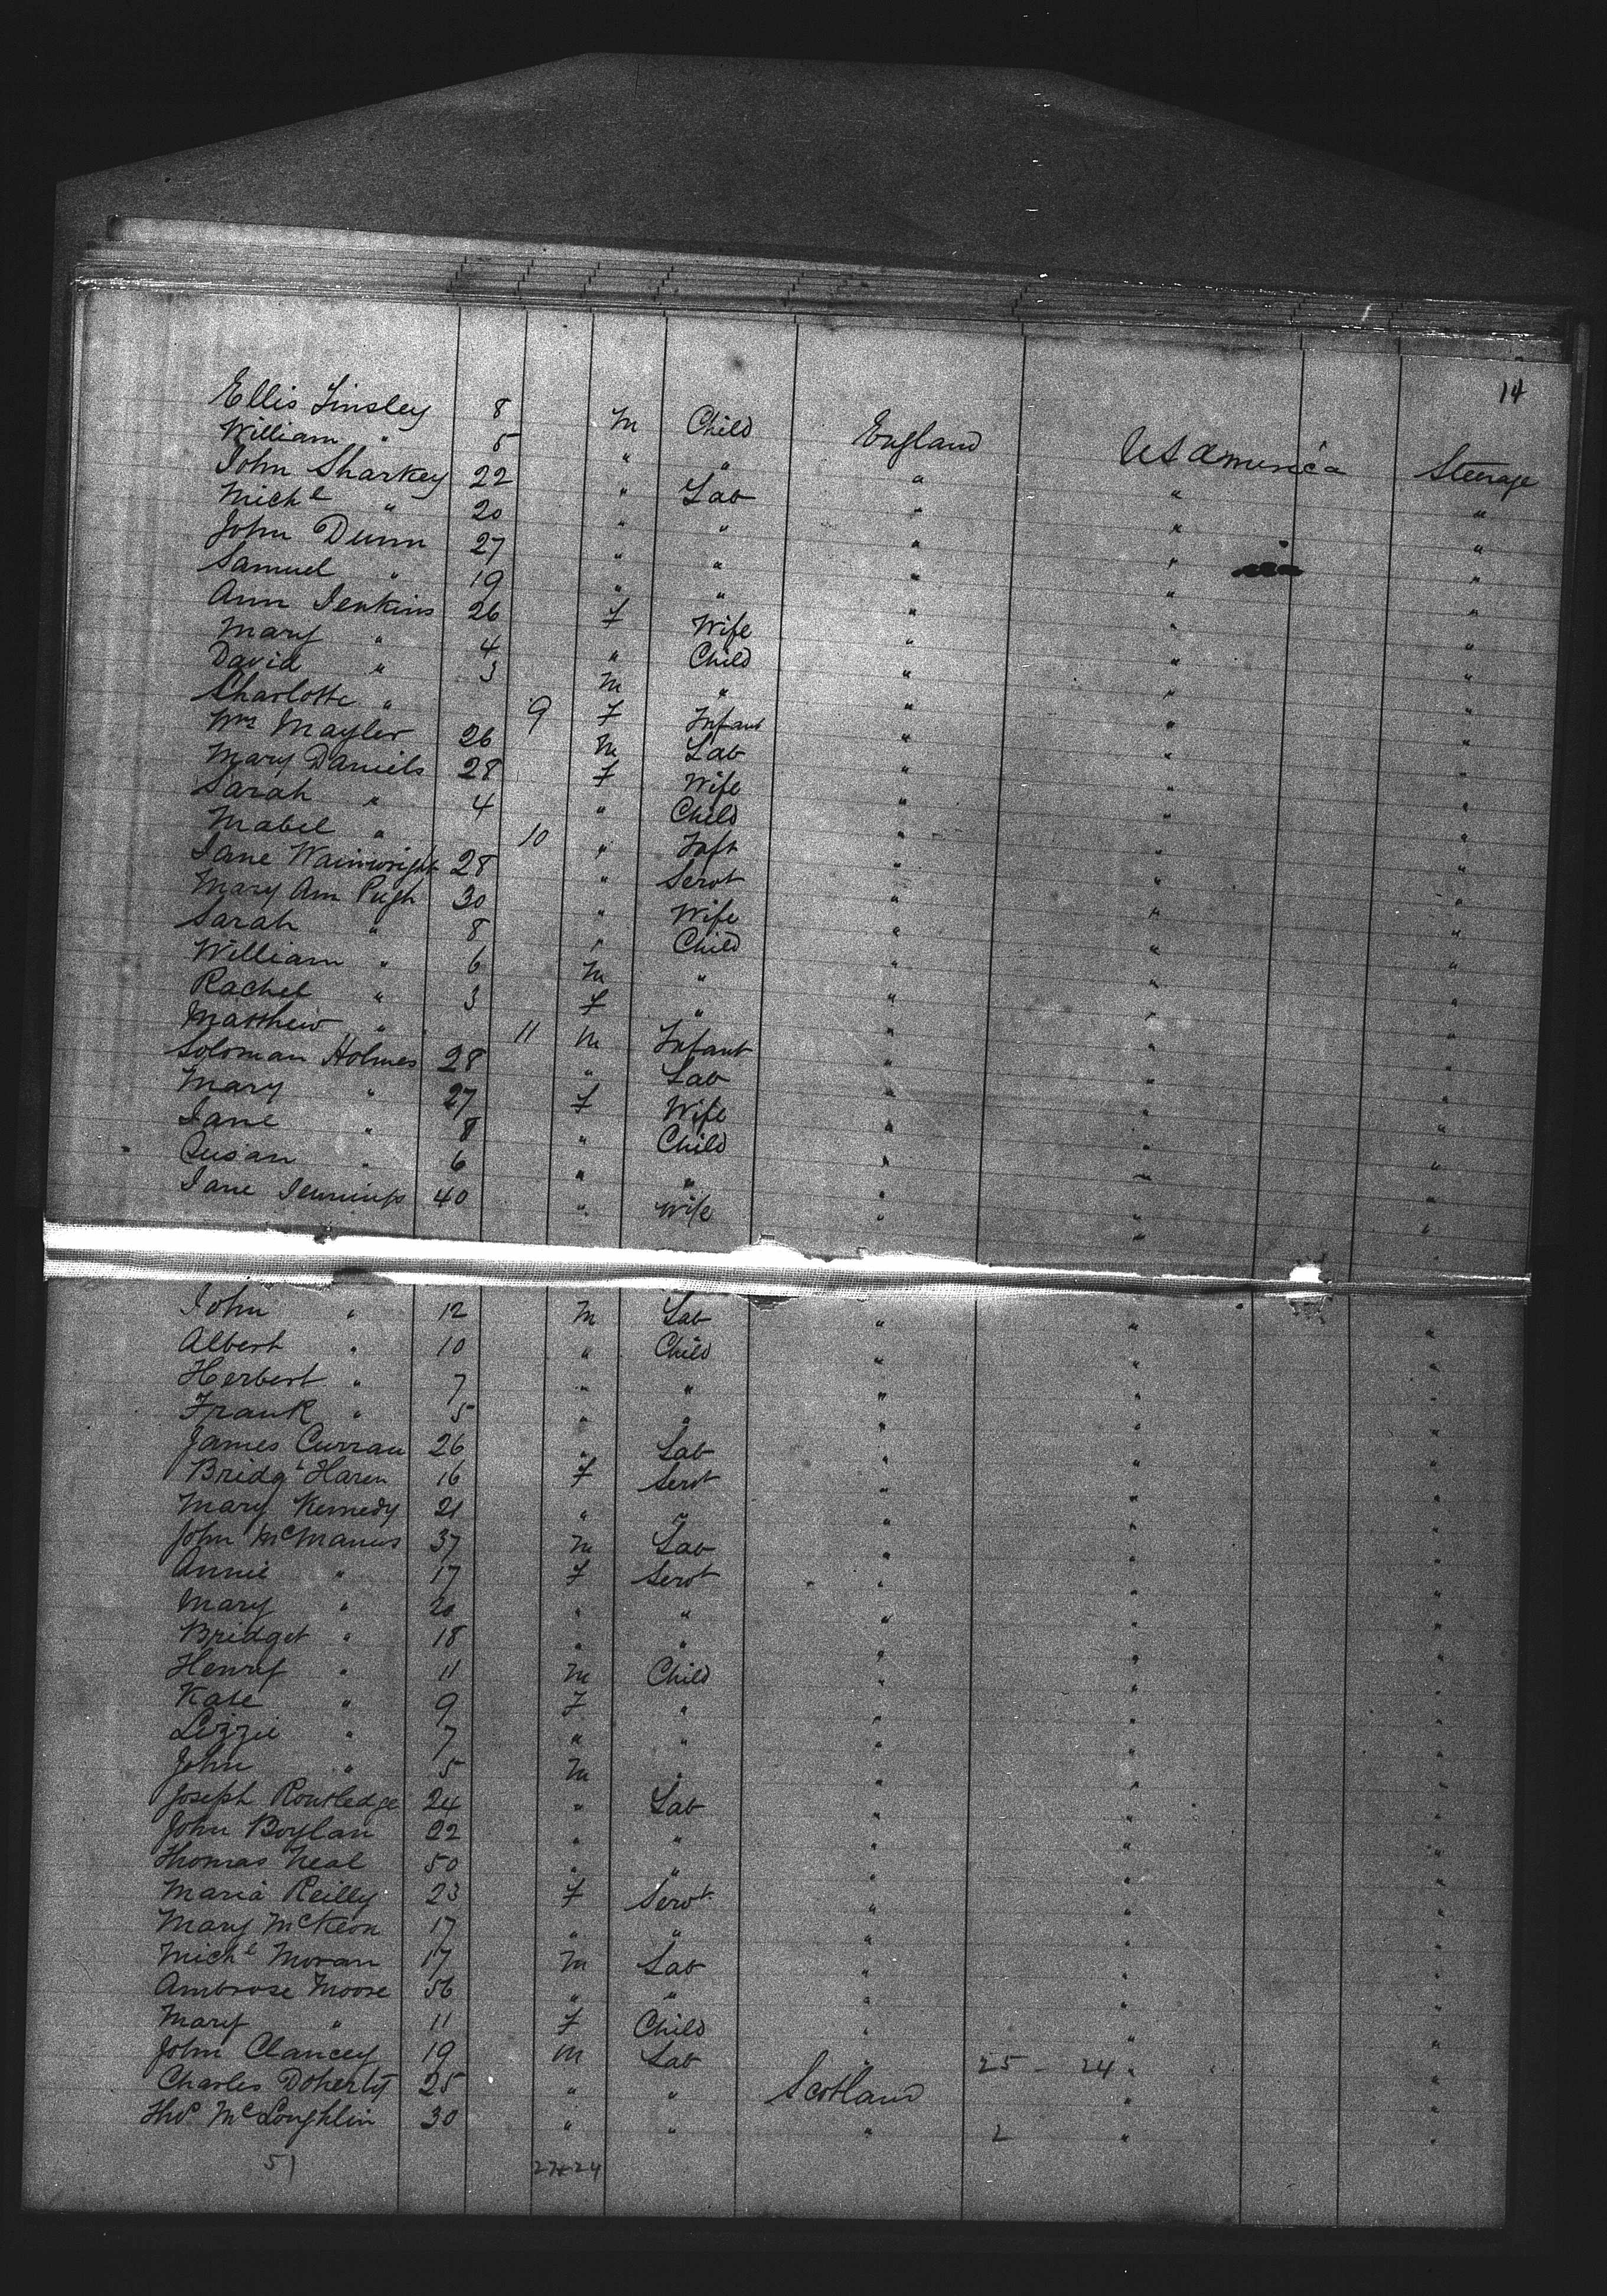 14
Ellis Linsley 8 M Child England US America Steerage
William " 5 " " " " "
John Sharkey 22 " Lab " " "
Michl " 20 " " " " "
John Dunn 27 " " " " "
Samuel " 19 " " " " "
Ann Jenkins 26 F Wife " " "
Mary " 4 " Child " " "
David " 3 M " " " "
Charlotte " 9 F Infant " " "
Wm Mayler 26 M Lab " " "
Mary Daniels 28 F Wife " " "
Sarah " 4 " Child " " "
Mabel " 10 " Inft " " "
Jane Wainwright 28 " Servt " " "
Mary Ann Pugh 30 " Wife " " "
Sarah " 8 " Child " " "
William " 6 M " " " "
Rachel " 3 F " " " "
Matthew " 11 M Infant " " "
Soloman Holmes 28 " Lab " " "
Mary " 27 F Wife " " "
Jane " 8 " Child " " "
Susan " 6 " " " " "
Jane Jennings 40 " Wife " " "
John " 12 M Lab " " "
Albert " 10 " Child " " "
Herbert " 7 " " " " "
Frank " 5 " " " " "
James Curran 26 " Lab " " "
Bridgt Haren 16 F Servt " " "
Mary Kennedy 21 " " " " "
John McManus 37 M Lab " " "
Annie " 17 F Servt " " "
Mary " 20 " " " " "
Bridget " 18 " " " " "
Henry " 11 M Child " " "
Kate " 9 F " " " "
Lizzie " 7 " " " " "
John " 5 M " " " "
Joseph Routledge 24 " Lab " " "
John Boylan 22 " " " " "
Thomas Neal 50 " " " " "
Maria Reilly 23 F Servt " " "
Mary McKeon 17 " " " " "
Michl Moran 17 M Lab " " "
Ambrose Moore 56 " " " " "
Mary " 11 F Child " " "
John Clancey 19 M Lab " 25 - 24 " "
Charles Doherty 25 " " Scotland " "
Thos McLoughlin 30 " " " 2 " "
51 27+24